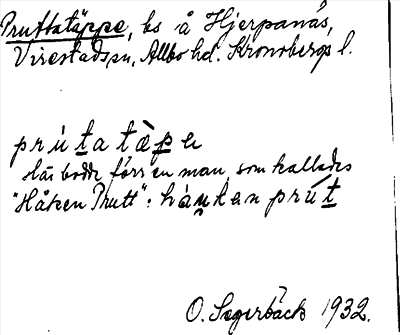 Pruttatäppe, bs å Hjerpanäs,
Virestads sn, Allbo hd. Kronobergs l.
prùt̲a tæ̀p̲e
Här bodde förr en man, som kallades
"Håken Prutt": hàu̯ken prút̲
O. Segerbäck 1932.